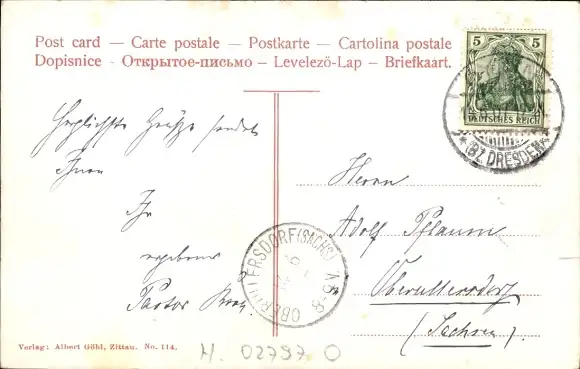 Post card — Carte postale — Postkarte — Cartolina postale
Dopisnice - Открытое-письмо — Levelezö-Lap — Briefkaart.
5 5
DEUTSCHES REICH
*(BZ. DRESDEN)*
Herzlichste Grüße sendet
Ihnen
Ihr
ergebener
Pastor
Herrn
Adolf Pflaum
Oberullersdorf
(Sachsen)
OBERULLERSDORF (SACHS)
V 8-8
Verlag: Albert Göhl, Zittau. No. 114.
H. 02797 O